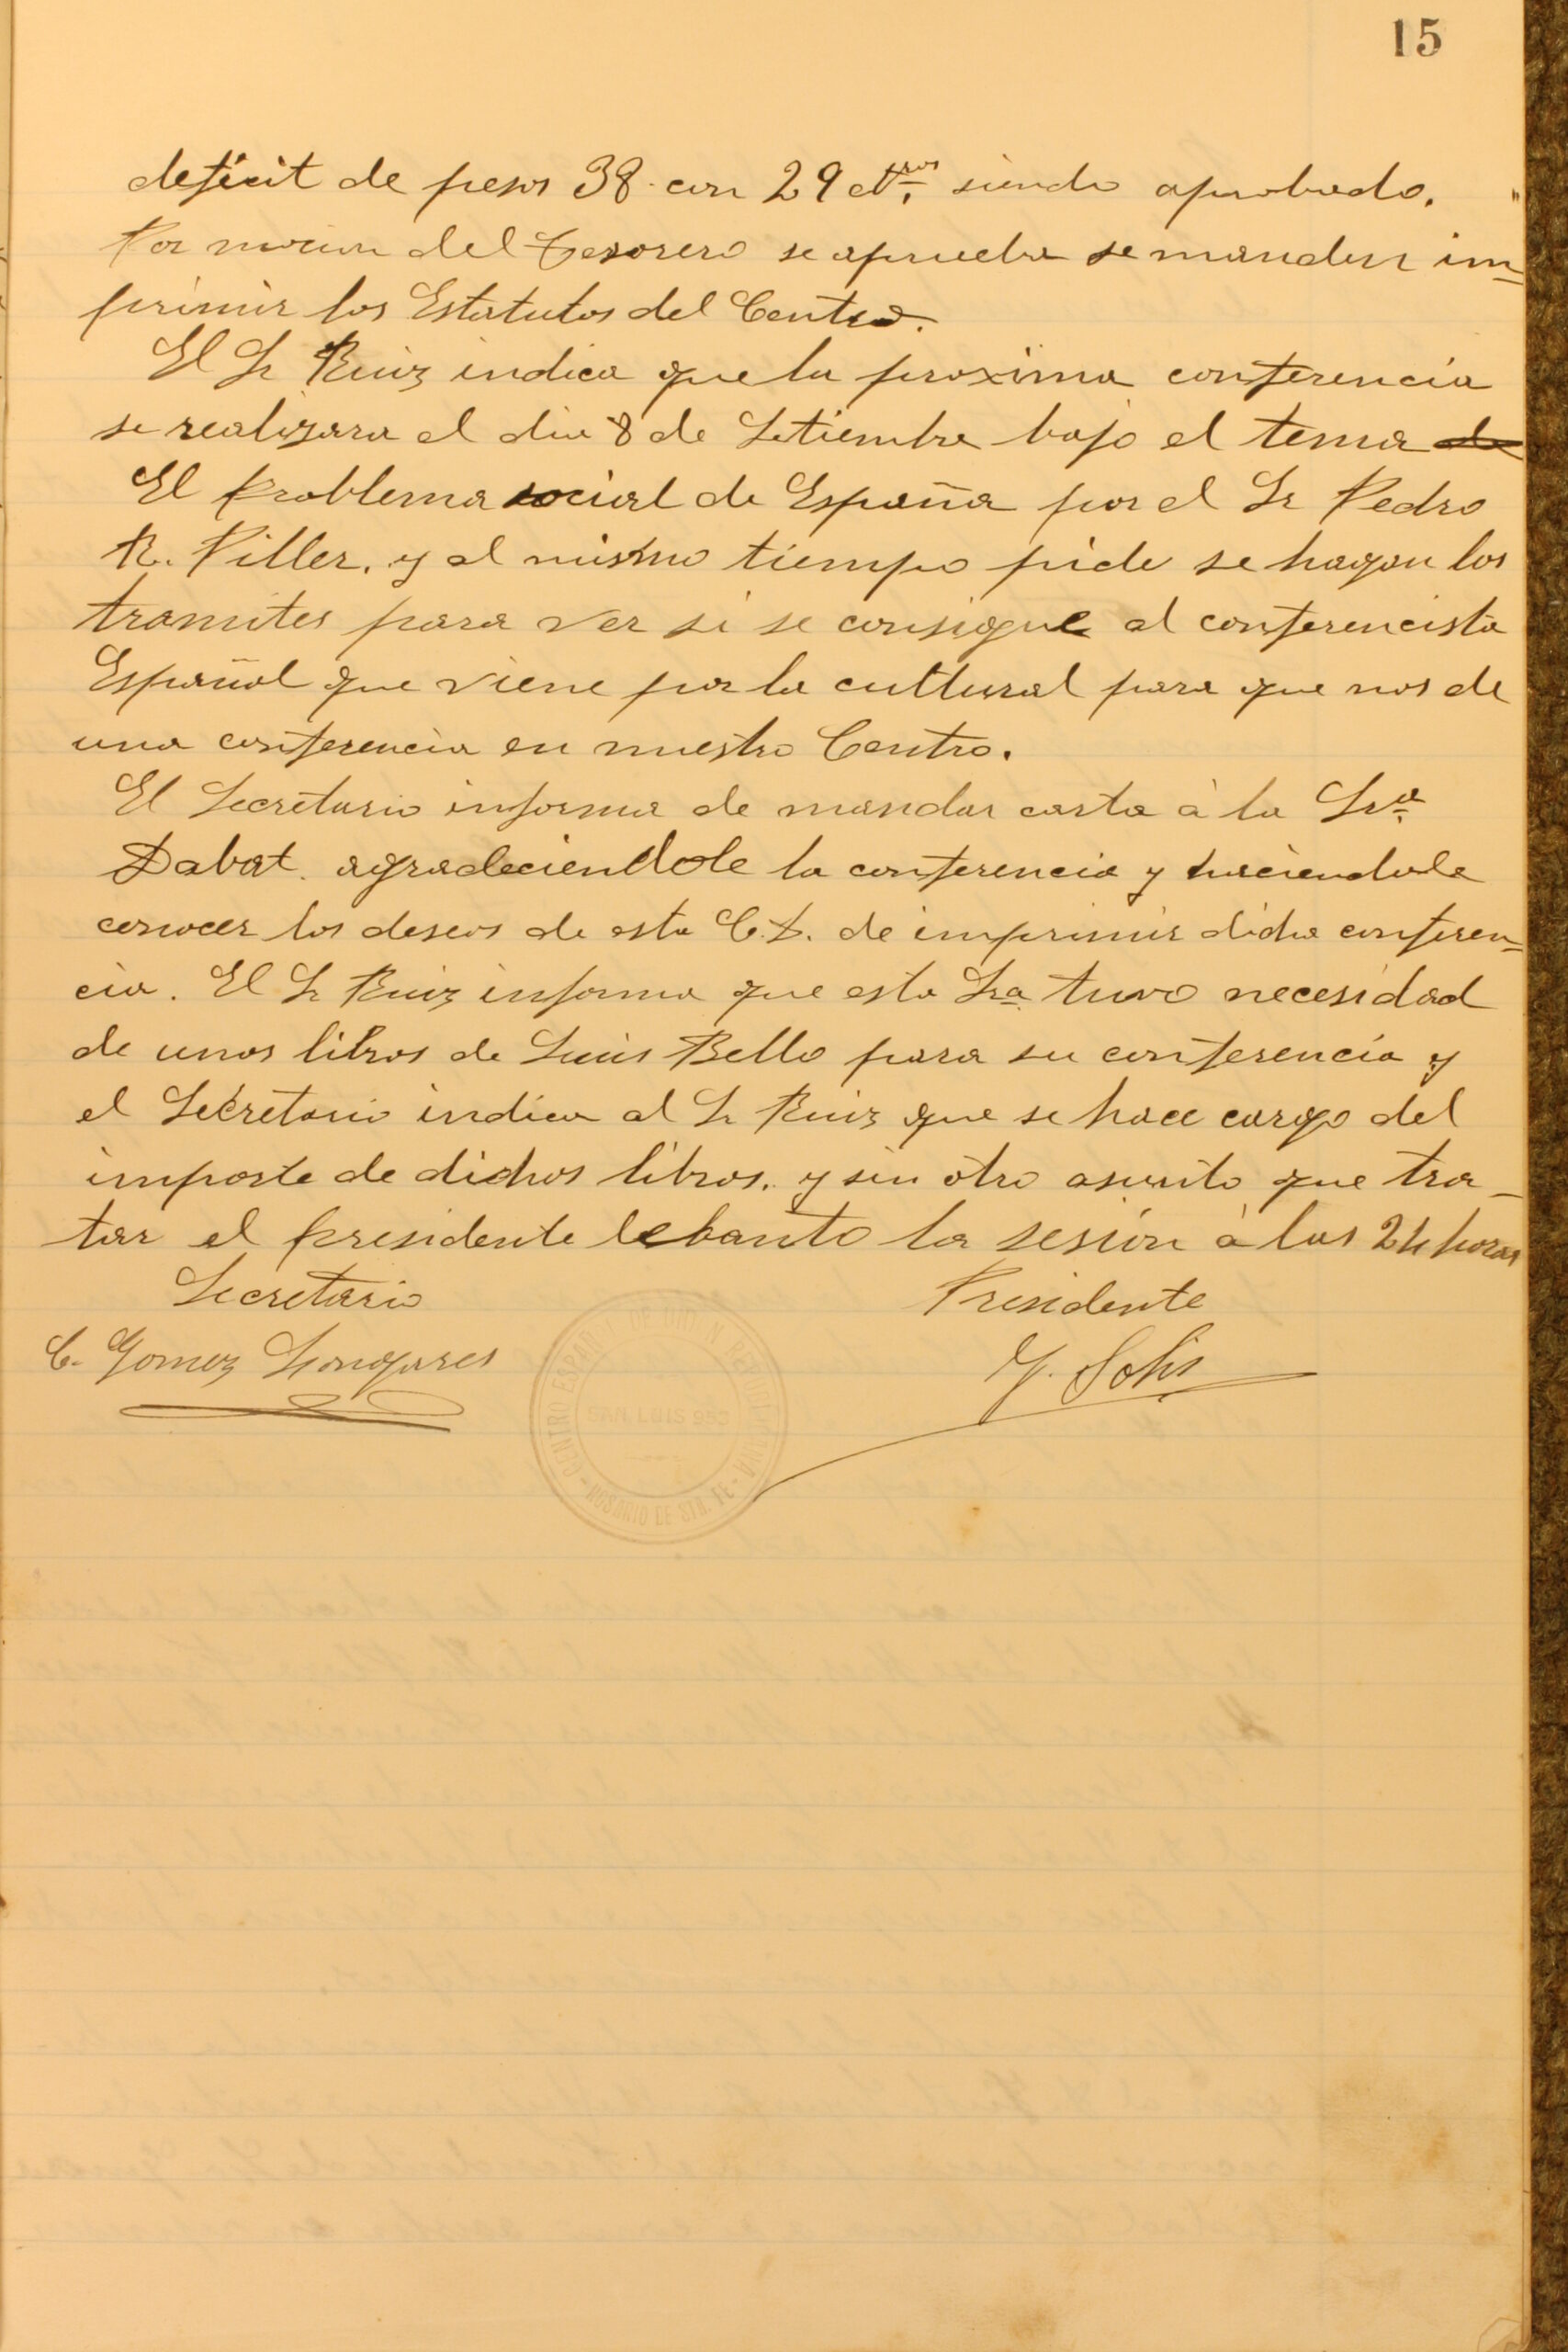 15
deficit de pesos 38 con 29 ctvos siendo aprobado.
Por mocion del tesorero se aprueba se manden im=
primir los Estatutos del Centro.
El Sr Ruiz indica que la proxima conferencia
se realizara el dia 8 de Setiembre bajo el tema de
El problema social de España por el Sr Pedro
R. Piller. y al mismo tiempo pide se hagan los
tramites para ver si se consigue al conferencista
Español que viene por la cultural para que nos de
una conferencia en nuestro Centro.
El Secretario informa de mandar carta à la Sra
Dabat. agradeciendole la conferencia y haciendole
conocer los deseos de esta C. D. de imprimir dicha conferen=
cia. El Sr Ruiz informa que esta Sra tuvo necesidad
de unos libros de Luis Bello para su conferencia y
el Secretario indica al Sr Ruiz que se hace cargo del
importe de dichos libros. y sin otro asunto que tra-
tar el presidente lebanto la sesión à las 24 horas
Secretario Presidente
C. Gomez Longares Y. Solis
CENTRO ESPAÑOL DE UNIÓN REPUBLICANA
SAN LUIS 953
- ROSARIO DE STA. FE -